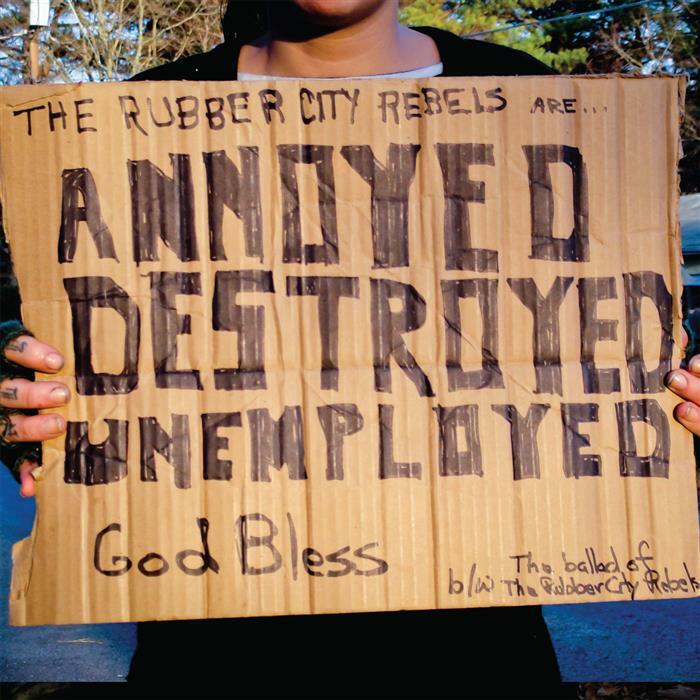 THE RUBBER CITY REBELS ARE...
ANNOYED
DESTROYED
UNEMPLOYED
God Bless
The ballad of
b/w The Rubber City Rebels